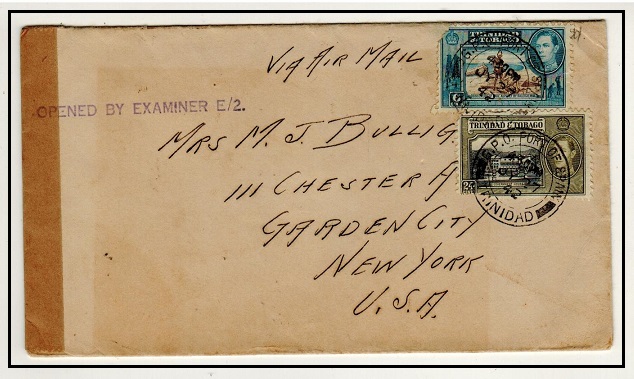 VIA AIR MAIL
OPENED BY EXAMINER E/2.
MRS M. J. BULLIG
111 CHESTER A
GARDEN CITY
NEW YORK
U.S.A.
TRINIDAD
& TOBAGO
TRINIDAD & TOBAGO
G.P.O. PORT OF SPAIN
TRINIDAD